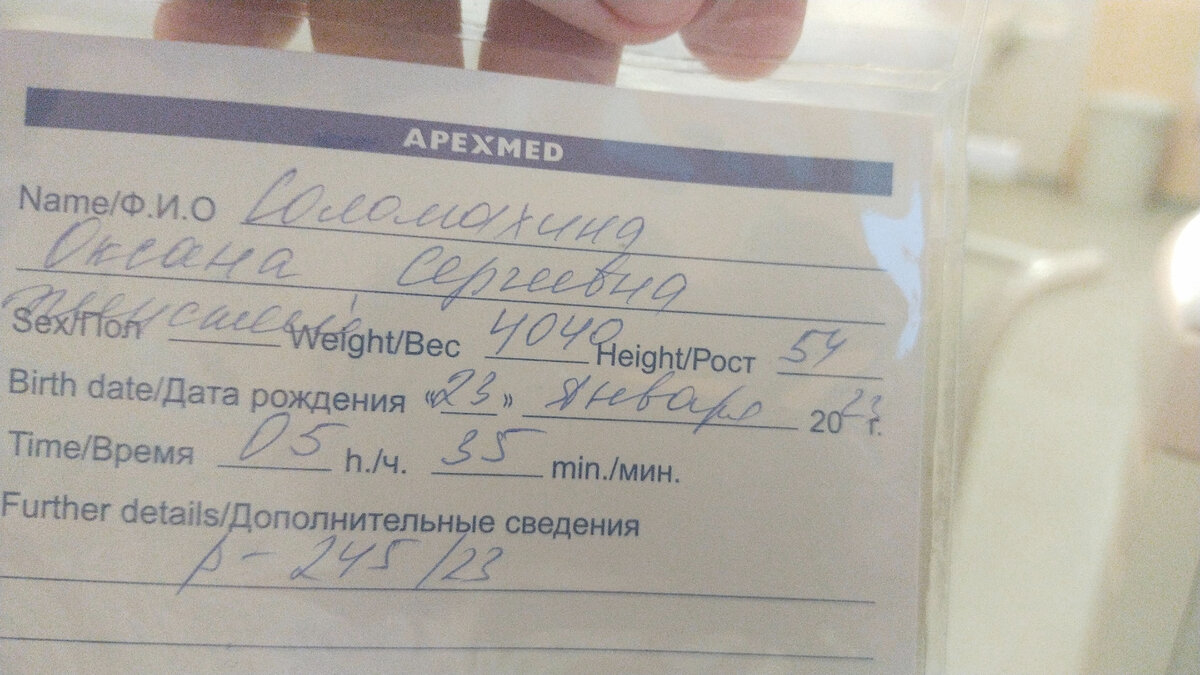 APEXMED
Name/Ф.И.О Соломахина
Оксана Сергеевна
Sex/Пол женский Weight/Вес 4040 Height/Рост 54
Birth date/Дата рождения «23» января 2023 г.
Time/Время 05 h./ч. 35 min./мин.
Further details/Дополнительные сведения
р-245/23